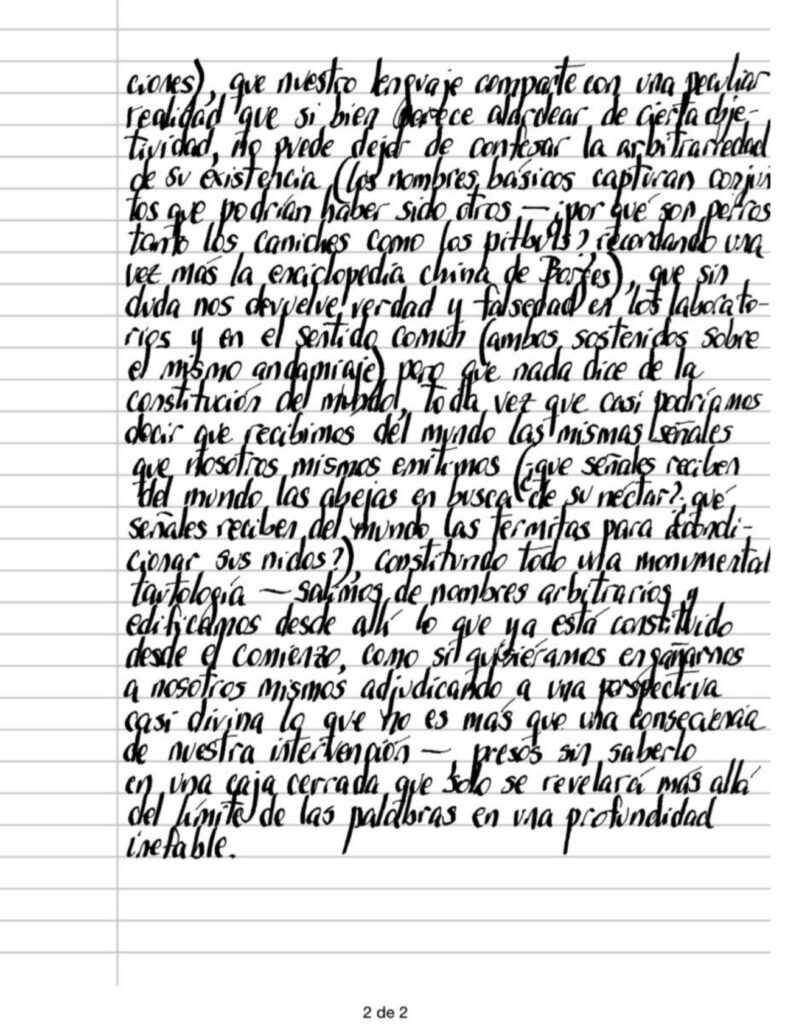 ciones), que nuestro lenguaje comparte con una peculiar
realidad que si bien parece alardear de cierta obje-
tividad, no puede dejar de confesar la arbitrariedad
de su existencia (los nombres básicos capturan conjun
tos que podrían haber sido otros — ¿por qué son perros
tanto los caniches como los pitbuls?, recordando una
vez más la enciclopedia china de Borges), que sin
duda nos devuelve verdad y falsedad en los laborato-
rios y en el sentido común (ambos sostenidos sobre
el mismo andamiaje) pero que nada dice de la
constitución del mundo, toda vez que casi podríamos
decir que recibimos del mundo las mismas señales
que nosotros mismos emitimos (¿que señales reciben
del mundo las abejas en busca de su néctar?, qué
señales reciben del mundo las termitas para acondi-
cionar sus nidos?), constitundo todo una monumental
tautología — salimos de nombres arbitrarios y
edificamos desde allí lo que ya está constituido
desde el comienzo, como si quisiéramos engañarnos
a nosotros mismos adjudicando a una perspectiva
casi divina lo que no es más que una consecuencia
de nuestra intervención — presos sin saberlo
en una caja cerrada que solo se revelará más allá
del límite de las palabras en una profundidad
inefable.
2 de 2